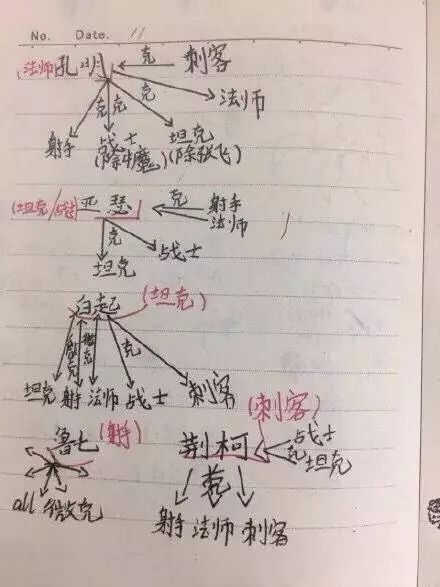 No. Date. 11
法师 孔明 克 刺客
克 克 克 法师
射手 战士 坦克
(除牛魔) (除张飞)
(坦克/战士) 亚瑟 克 射手
法师
克
坦克 战士
白起 (坦克)
克
坦克 射手 法师 战士 刺客
鲁七 (射手)
all 微克
荆柯 (刺客)
克 战士
坦克
克
射手 法师 刺客